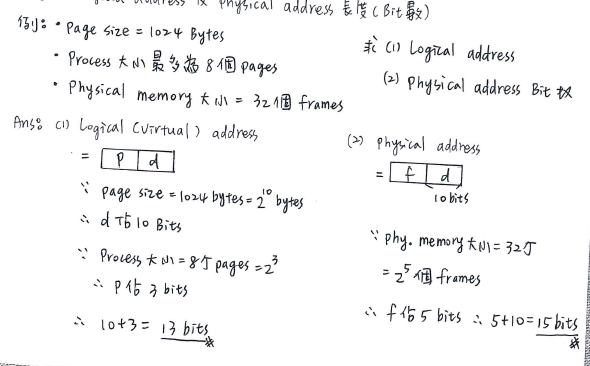 logical address & physical address 長度(Bit數)
例: • Page size = 1024 Bytes
• Process 大小最多為 8個 pages
• Physical memory 大小 = 32個 frames
求 (1) Logical address
(2) Physical address Bit 數
Ans: (1) Logical (Virtual) address
= P d
∵ page size = 1024 bytes = 2^10 bytes
∴ d 佔 10 Bits
∵ Process 大小 = 8个 pages = 2^3
∴ P佔 3 bits
∴ 10+3 = 13 bits *
(2) physical address
= f d
10 bits
∵ phy. memory 大小 = 32个
= 2^5 個 frames
∴ f 佔 5 bits ∴ 5+10 = 15 bits *